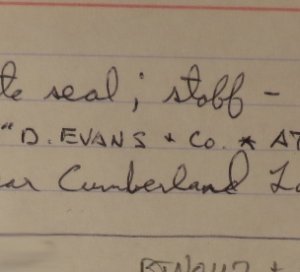 te seal; staff -
"D. EVANS + CO. * AT
ar Cumberland